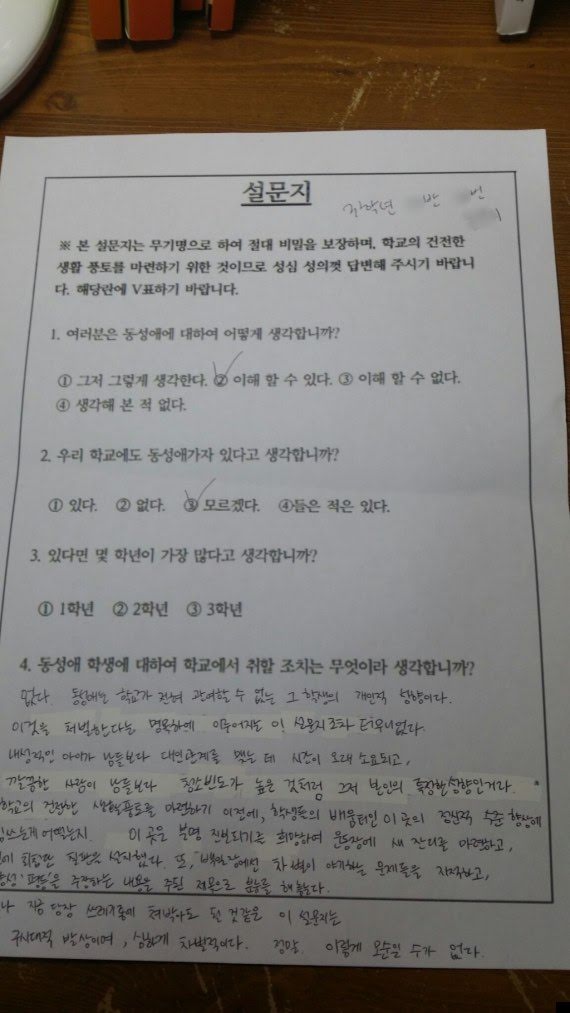 설문지
3학년 반 번
※ 본 설문지는 무기명으로 하여 절대 비밀을 보장하며, 학교의 건전한
생활 풍토를 마련하기 위한 것이므로 성심 성의껏 답변해 주시기 바랍니
다. 해당란에 V표하기 바랍니다.
1. 여러분은 동성애에 대하여 어떻게 생각합니까?
① 그저 그렇게 생각한다. ② 이해 할 수 있다. ③ 이해 할 수 없다.
④ 생각해 본 적 없다.
2. 우리 학교에도 동성애가자 있다고 생각합니까?
① 있다. ② 없다. ③ 모르겠다. ④들은 적은 있다.
3. 있다면 몇 학년이 가장 많다고 생각합니까?
① 1학년 ② 2학년 ③ 3학년
4. 동성애 학생에 대하여 학교에서 취할 조치는 무엇이라 생각합니까?
없다. 동성애는 학교가 전혀 관여할 수 없는 그 학생의 개인적 성향이다.
이것을 처벌한다는 명목하에 이루어지는 이 설문지조차 터무니없다.
내성적인 아이가 남들보다 대인관계를 맺는 데 시간이 오래 소요되고,
깔끔한 사람이 남들보다 청소빈도가 높은 것처럼 그저 본인의 특정한 성향인거라.
학교의 건전한 생활풍토를 마련하기 이전에, 학생들의 배움터인 이 곳의 전반적 수준 향상에
힘쓰는게 어떨는지. 이 곳은 분명 진보되기를 희망하여 운동장에 새 잔디를 마련하고,
설치했다. 또, 차별이 야기하는 문제들을 지적하고,
'평등'을 주장하는 내용을 주된 제목으로
지금 당장 쓰레기통에 쳐박아도 될 것같은 이 설문지는
구시대적 발상이며, 심하게 차별적이다. 정말. 이렇게 모순일 수가 없다.